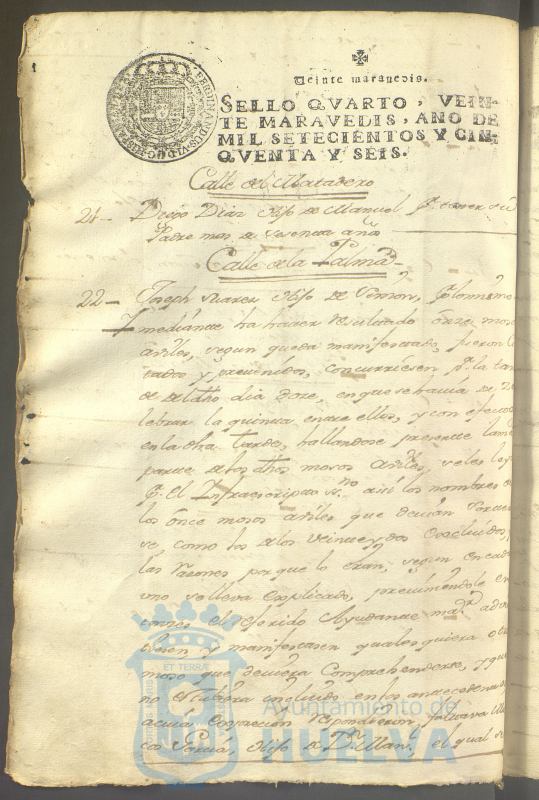 Veinte maravedis.
SELLO QVARTO, VEIN-
TE MARAVEDIS, AÑO DE
MIL SETECIENTOS Y CIN-
QVENTA Y SEIS.
Calle del Matadero
21 Diego Diaz Hijo de Manuel p.r tener su
Padre mas de sesenta años
Calle de la Palma
22 Joseph Suarez Hijo de Simon, p.r lo mismo
Y mediante ha haver resultado onze mozos
aviles, segun queda manifestado, fueron
tados y prevenidos, concurriesen p.r la tar
de de dicho dia doze, en que se havia de ze
lebrar la quinta entre ellos, y con efecto
en la dha tarde, hallandose presente la m
parte de los dhos mozos aviles, se les le
p.r El Infraescripto ss.no asi los nombres
los onze mozos aviles que devian sortear
se como los de los veinte y dos excluidos,
las razones por que lo eran, segun en cada
uno se lleva explicado, previniendole en
tonzes el referido Ayudante m.r
y manifestasen qualesquiera otro
mozo que deviera comprehenderse, y que
no estubiera incluido en los antecedentes
acuia respondieron, faltava
Garcia, Hijo de D.n el qual
ET TERRÆ
Ayuntamiento de
HUELVA